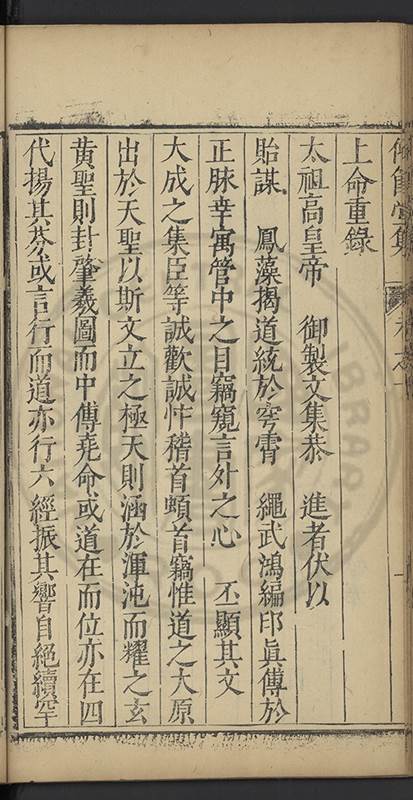 上命重錄
太祖高皇帝 御製文集恭 進者伏以
貽謀 鳳藻揭道統於穹霄 繩武鴻編印眞傳於
正脉幸寓管中之目竊窺言外之心 丕顯其文
大成之集臣等誠歡誠忭稽首頓首竊惟道之大原
出於天聖以斯文立之極天則涵於渾沌而耀之玄
黃聖則封肇羲圖而中傳堯命或道在而位亦在四
代揚其芬或言行而道亦行六經振其響自絕續罕